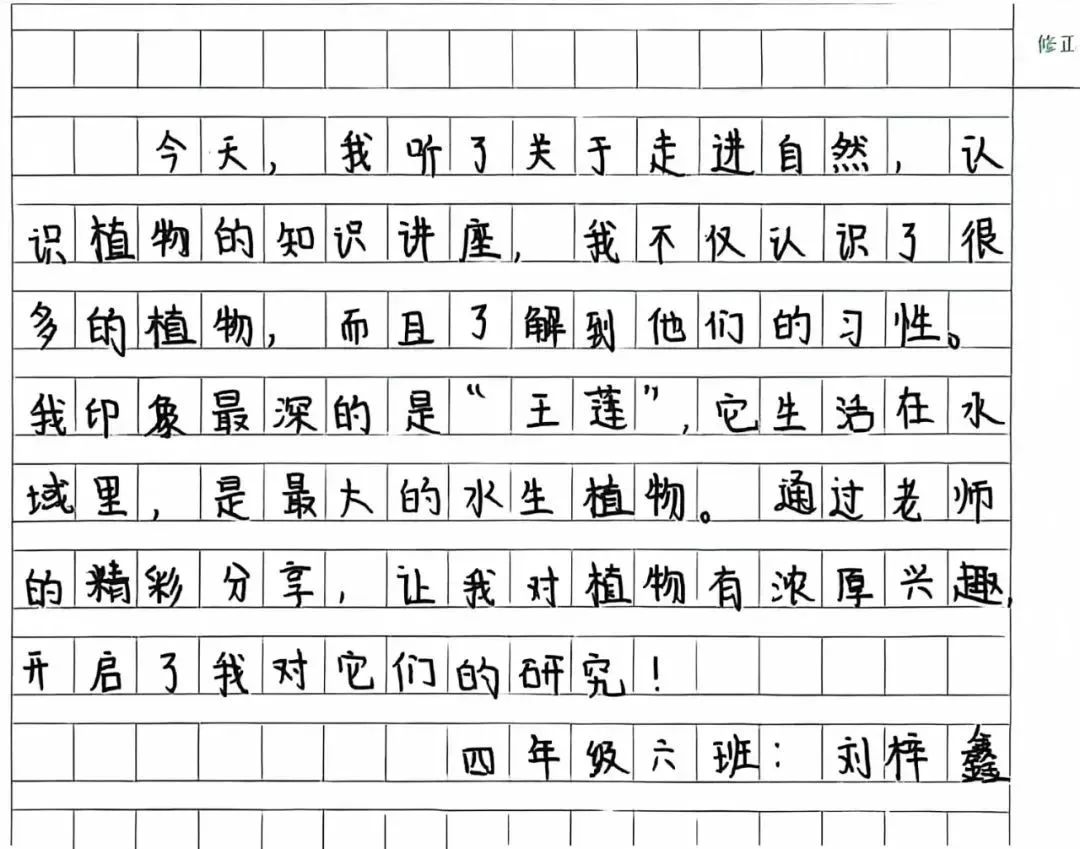 修正
今天，我听了关于走进自然，认
识植物的知识讲座，我不仅认识了很
多的植物，而且了解到他们的习性。
我印象最深的是“王莲”，它生活在水
域里，是最大的水生植物。通过老师
的精彩分享，让我对植物有浓厚兴趣，
开启了我对它们的研究！
四年级六班：刘梓鑫